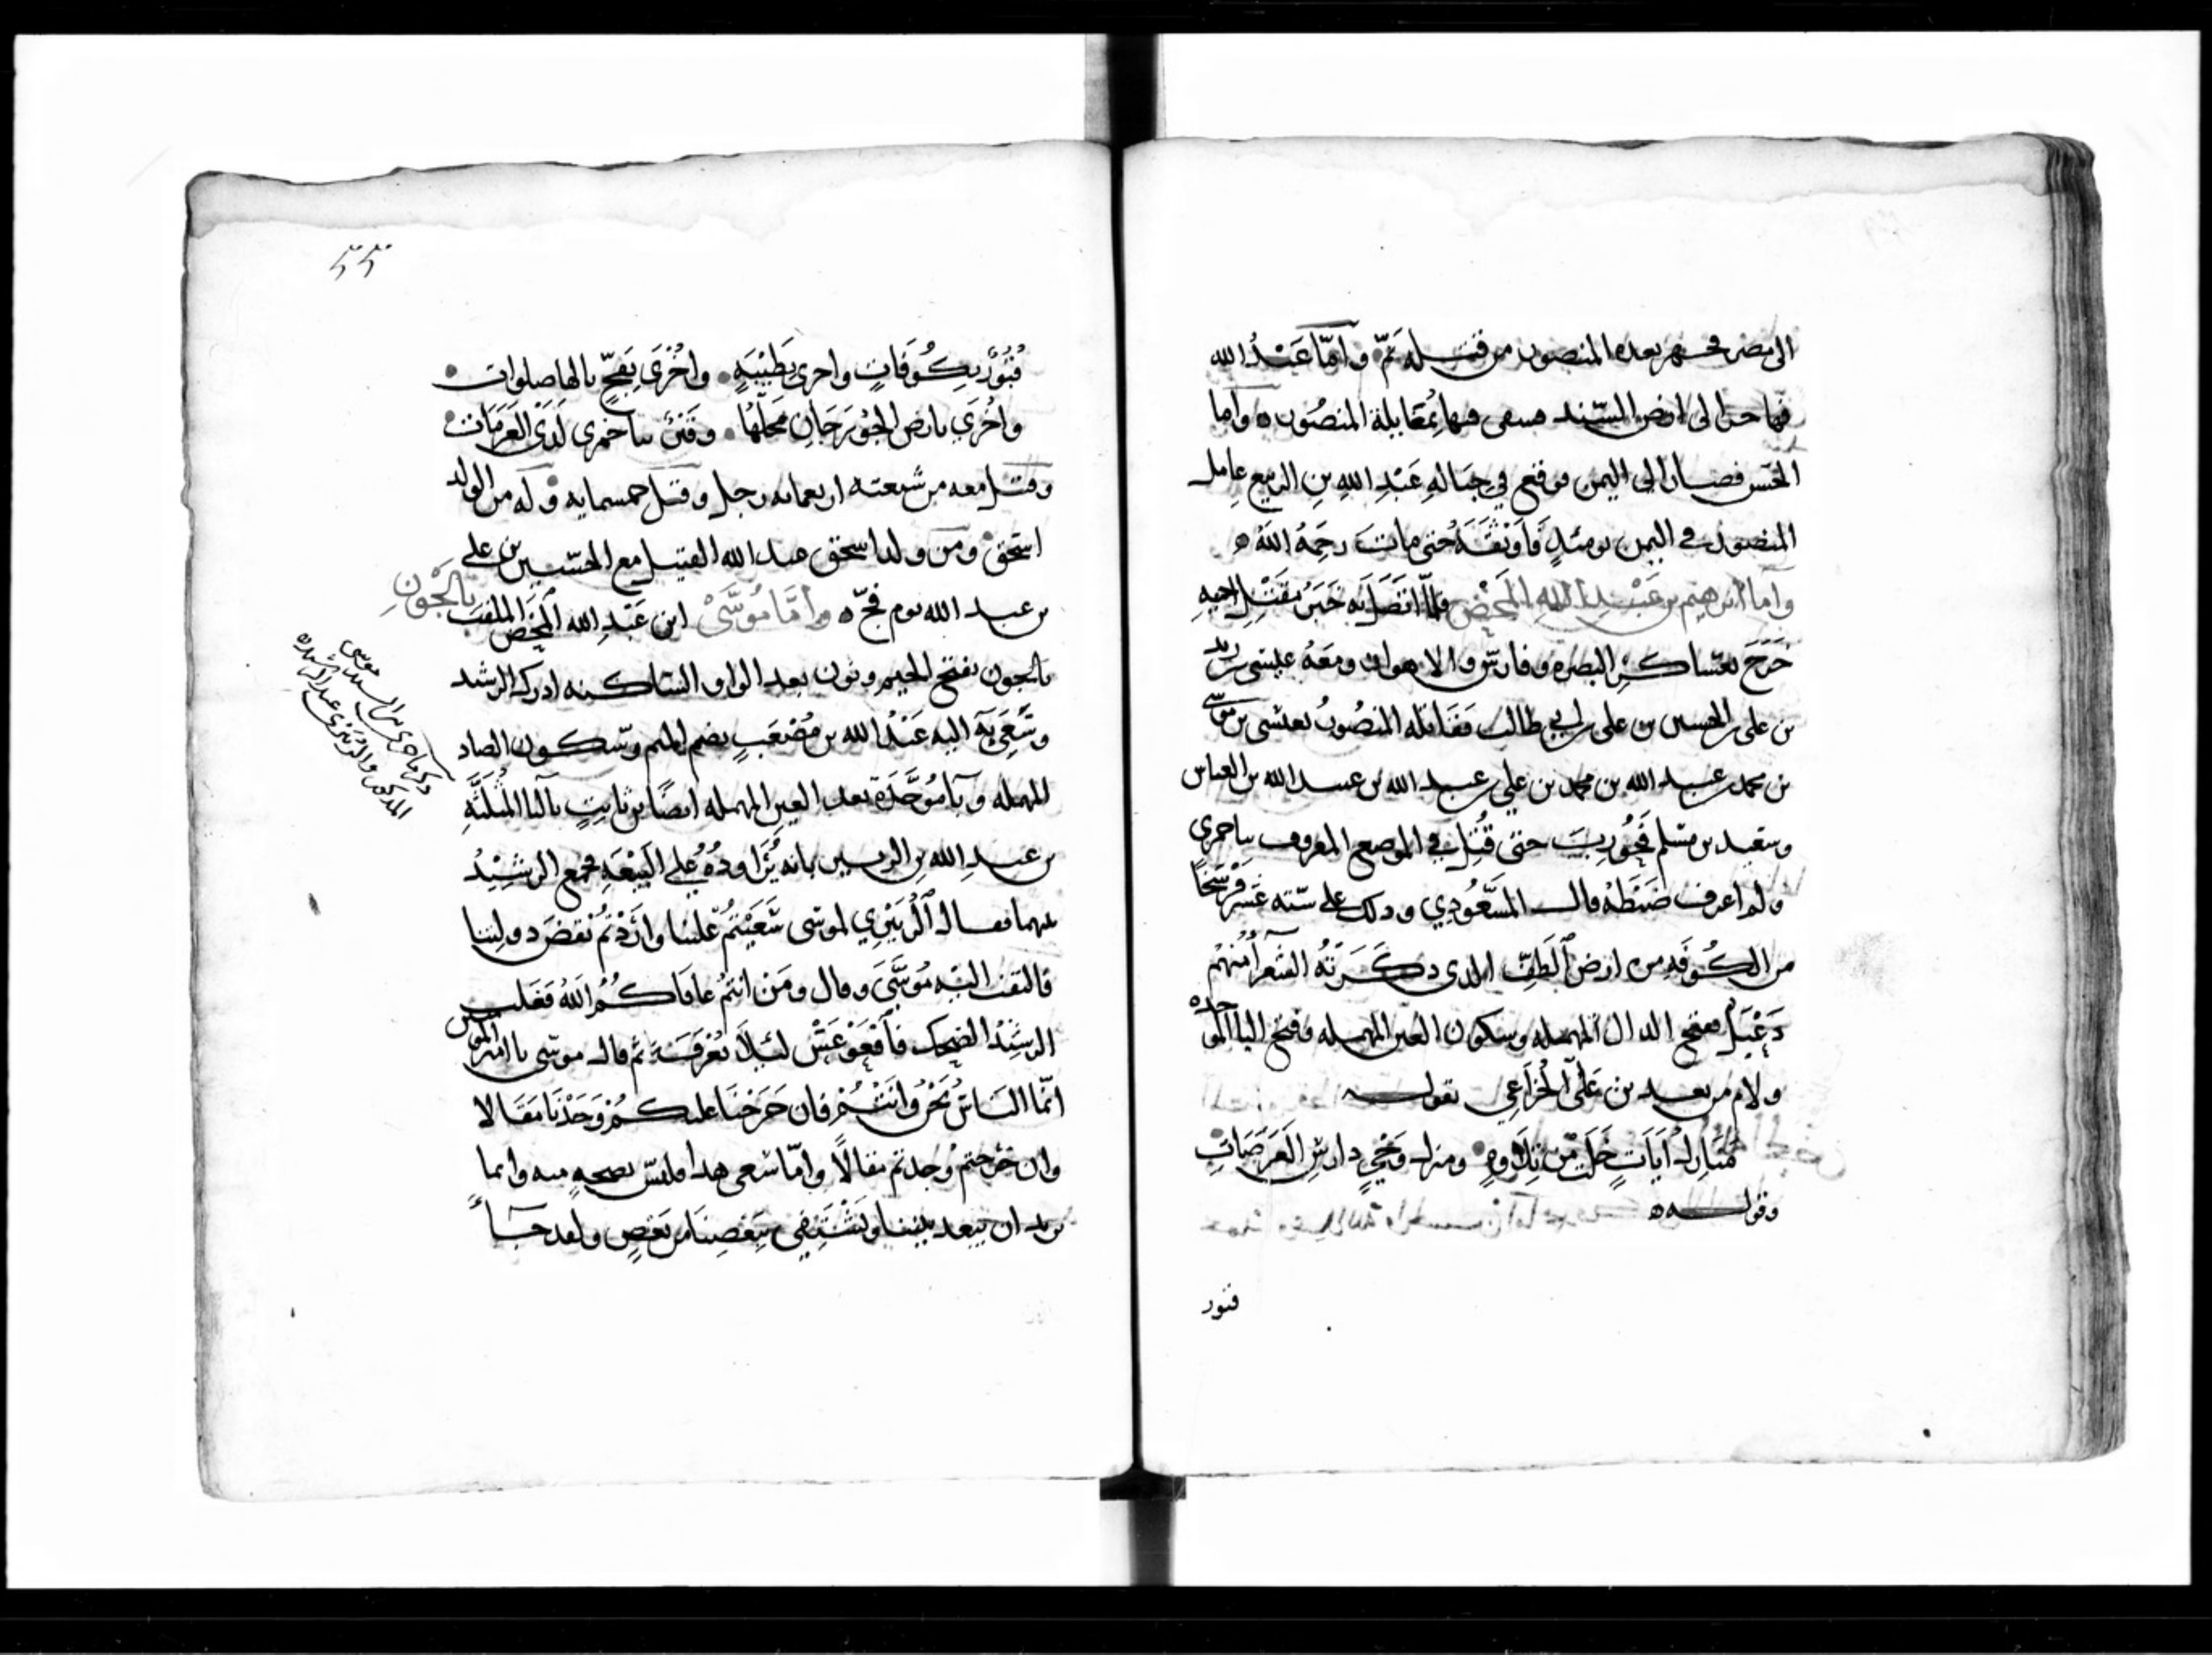 الى مصر فجهز بعده المنصور من قتله ثم وامّا عَبْدُ الله
فهاجر الى ارض السّند فبقى فيها بمُقابلة المنصُور ه واما
الحسن فصار الى اليمن فوقع في حِبَالهِ عَبْدِ اللهِ بنِ الربيع عامل
المنصور في اليمن يومئذٍ فَاَوْثقَهُ حتى مات رحِمَهُ اللهُ ه
واما ابرهيم بن عَبْدِ الله المحْض فلمّا اتصَلَ به خبَرُ مَقتلِ اخيهِ
خرَجَ بعَسَاكرِ البصره وفارسَ والاهواز ومعَهُ عيسَى بن زيد
بن على بن الحسين بن على بن ابي طالب فقاتله المنصُورُ بعيسى بن موسَى
بن محمد بن عبد الله بن محمد بن علي بن عبد الله بن عبد الله بن العباس
وسَعيد بن مسْلم فحُورِبَ حتى قُتِلَ في الموضع المعروف بباخمرى
ولم اعرف ضَبْطهُ قال المَسْعُودِي وذلك على ستّه عشَر فرْسَخًا
من الكُوفَهِ من ارض الطَفّ الذى ذكَرَتْهُ الشعرآ منهُم
دَعْبَل بفتح الدال المهمله وسكون العين المهمله وفتح الباالموحده
ولام من بعد بن عَلىّ الخُزَاعِي يقول
مَنَازِلُ اَيَاتٍ خَلَتْ مِنْ تِلاَوةٍ ومنزل وَحْيٍ دارسِ العَرَصَاتِ
وقوله ه
فنور
٥٥
قُبُورٌ بِكُوفَانٍ واخرى بِطَيْبَةٍ واخْرَى بِفَخٍّ يالها صلوات
واخْرَى بارض الجُوْزَجَانِ مَحَلّهَا وقبْر بباخمرى لَدَى العَرَمَات
وقتل معه من شيعته اربعمائه رجل وقتل خمسمايه وله من الولد
اسحق ومن ولد اسحق عبد الله القتيل مع الحسين بن على
بن عبد الله يوم فخّ ه وامّا مُوسَى ابن عَبْدِ الله المحْض الملقب بالجَوْنِ
بالجون بفتح الجيم ونون بعد الواو الساكنه ادرك الرشد
وسَعى بهِ اليه عَبْدُ الله بن مُصْعَبٍ بضم الميم وسكون الصاد
المهمله وبآ مُوحَّدَة بعد العين المهمله ايضًا بن ثابتٍ بالثا المثلثَهِ
بن عبدِ الله بن الزبير بانه يُرَاودُهُ على البَيْعَةِ فجمع الرشِيْدُ
بينهما فقال الزُبَيْرِي لموسَى سَعَيْتُمْ علينا واَرَدْتُم نقضَ دولتنا
فالتفت اليْهِ مُوسَى وقال ومَن انتُمْ عافاكُمُ اللهُ فغلب
الرشيْدُ الضحك ثم قال موسَى يا امير المومنين
انّما الناسُ نحْنُ وانْتُمْ فان خرَجْنَا عليكمْ وَجَدْنَا مَقَالا
وان خرجتم وجدتم مقالاً وامّا سَعى هذا فليسَ نصيحهٍ منه وانما
يريد ان يبعد بيننا ويَشْتَفِي بِبَعْضِنَا مِن بَعْضٍ ولقد جآ
موسى